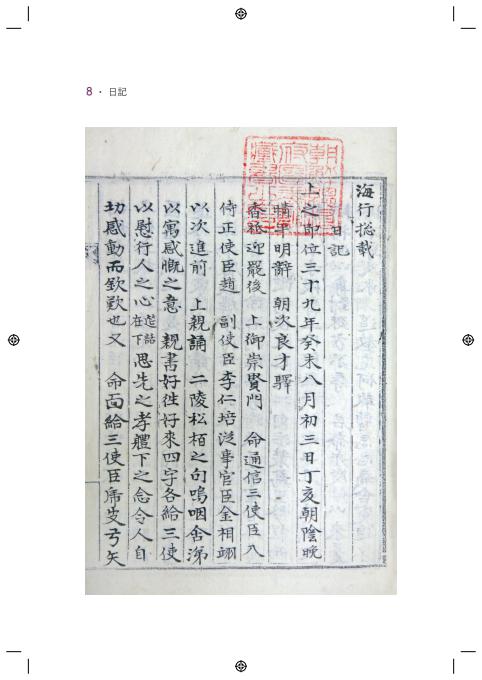 8 · 日記
海行摠載
日記
上之卽位三十九年癸未八月初三日丁亥朝陰晩
晴平明辭 朝次良才驛
香祗迎罷後 上御崇賢門 命通信三使臣入
侍正使臣趙 副使臣李仁培從事官臣金相翊
以次進前 上親誦 二陵松栢之句嗚咽舍涕
以寓感慨之意 親書好徃好來四字各給三使
以慰行人之心起詰在下思先之孝軆下之念令人自
切感動而欽歎也又 命面給三使臣席皮弓矢